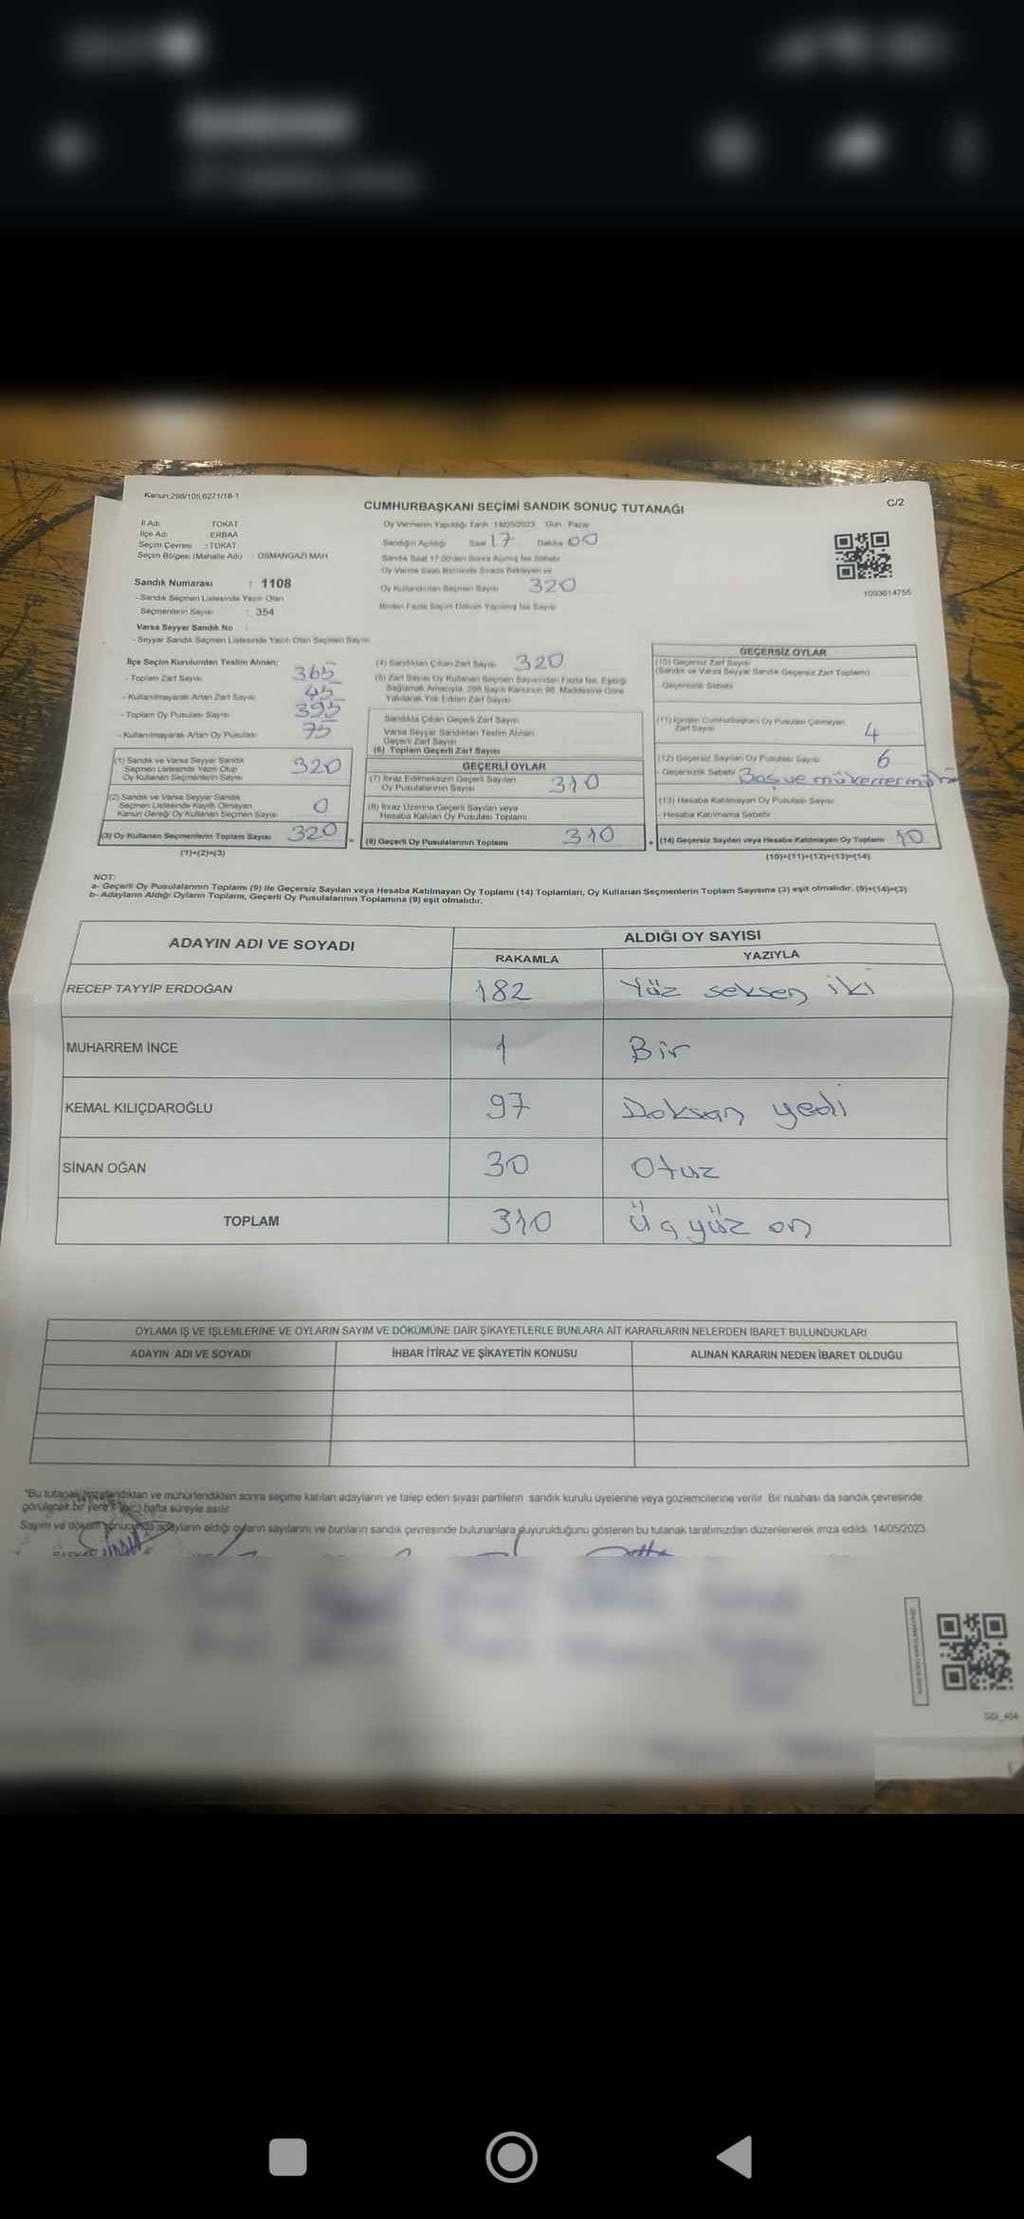 Kanun:298/105,6271/18-1
CUMHURBAŞKANI SEÇİMİ SANDIK SONUÇ TUTANAĞI
C/2
İl Adı TOKAT
İlçe Adı ERBAA
Seçim Çevresi : TOKAT
Seçim Bölgesi (Mahalle Adı) : OSMANGAZİ MAH
Sandık Numarası : 1108
- Sandık Seçmen Listesinde Yazılı Olan
Seçmenlerin Sayısı : 354
Varsa Seyyar Sandık No
- Seyyar Sandık Seçmen Listesinde Yazılı Olan Seçmen Sayısı
Oy Vermenin Yapıldığı Tarih 14/05/2023 Gün Pazar
Sandığın Açıldığı Saat 17 Dakika 00
Oy Kullandırılan Seçmen Sayısı 320
1093614755
İlçe Seçim Kurulundan Teslim Alınan;
- Toplam Zarf Sayısı 365
- Kullanılmayarak Artan Zarf Sayısı 45
- Toplam Oy Pusulası Sayısı 395
- Kullanılmayarak Artan Oy Pusulası 75
(1) Sandık ve Varsa Seyyar Sandık
Seçmen Listesinde Yazılı Olup
Oy Kullanan Seçmenlerin Sayısı 320
(2) Sandık ve Varsa Seyyar Sandık
Seçmen Listesinde Kayıtlı Olmayan
Kanun Gereği Oy Kullanan Seçmen Sayısı 0
(3) Oy Kullanan Seçmenlerin Toplam Sayısı 320
(1)+(2)=(3)
(4) Sandıktan Çıkan Zarf Sayısı 320
(5) Zarf Sayısı Oy Kullanan Seçmen Sayısından Fazla İse, Eşitliği
Sağlamak Amacıyla, 298 Sayılı Kanunun 98. Maddesine Göre
Yakılarak Yok Edilen Zarf Sayısı
Sandıkta Çıkan Geçerli Zarf Sayısı
Varsa Seyyar Sandıktan Teslim Alınan
Geçerli Zarf Sayısı
(6) Toplam Geçerli Zarf Sayısı
GEÇERLİ OYLAR
(7) İtiraz Edilmeksizin Geçerli Sayılan
Oy Pusulalarının Sayısı 310
(8) İtiraz Üzerine Geçerli Sayılan veya
Hesaba Katılan Oy Pusulası Toplamı
(9) Geçerli Oy Pusulalarının Toplamı 310
GEÇERSİZ OYLAR
(10) Geçersiz Zarf Sayısı
(Sandık ve Varsa Seyyar Sandık Geçersiz Zarf Toplamı)
- Geçersizlik Sebebi
(11) İçinden Cumhurbaşkanı Oy Pusulası Çıkmayan
Zarf Sayısı 4
(12) Geçersiz Sayılan Oy Pusulası Sayısı 6
- Geçersizlik Sebebi Boş ve mükerrer
(13) Hesaba Katılmayan Oy Pusulası Sayısı
- Hesaba Katılmama Sebebi
(14) Geçersiz Sayılan veya Hesaba Katılmayan Oy Toplamı 10
(10)+(11)+(12)+(13)=(14)
NOT:
a- Geçerli Oy Pusulalarının Toplamı (9) ile Geçersiz Sayılan veya Hesaba Katılmayan Oy Toplamı (14) Toplamları, Oy Kullanan Seçmenlerin Toplam Sayısına (3) eşit olmalıdır. (9)+(14)=(3)
b- Adayların Aldığı Oyların Toplamı, Geçerli Oy Pusulalarının Toplamına (9) eşit olmalıdır.
ADAYIN ADI VE SOYADI
ALDIĞI OY SAYISI
RAKAMLA YAZIYLA
RECEP TAYYİP ERDOĞAN 182 Yüz seksen iki
MUHARREM İNCE 1 Bir
KEMAL KILIÇDAROĞLU 97 Doksan yedi
SİNAN OĞAN 30 Otuz
TOPLAM 310 Üç yüz on
OYLAMA İŞ VE İŞLEMLERİNE VE OYLARIN SAYIM VE DÖKÜMÜNE DAİR ŞİKAYETLERLE BUNLARA AİT KARARLARIN NELERDEN İBARET BULUNDUKLARI
ADAYIN ADI VE SOYADI İHBAR İTİRAZ VE ŞİKAYETİN KONUSU ALINAN KARARIN NEDEN İBARET OLDUĞU
"Bu tutanak imzalandıktan ve mühürlendikten sonra seçime katılan adayların ve talep eden siyasi partilerin sandık kurulu üyelerine veya gözlemcilerine verilir. Bir nüshası da sandık çevresinde
görülecek bir yere 1 (bir) hafta süreyle asılır.
Sayım ve döküm sonucunda adayların aldığı oyların sayılarını ve bunların sandık çevresinde bulunanlara duyurulduğunu gösteren bu tutanak tarafımızdan düzenlenerek imza edildi. 14/05/2023